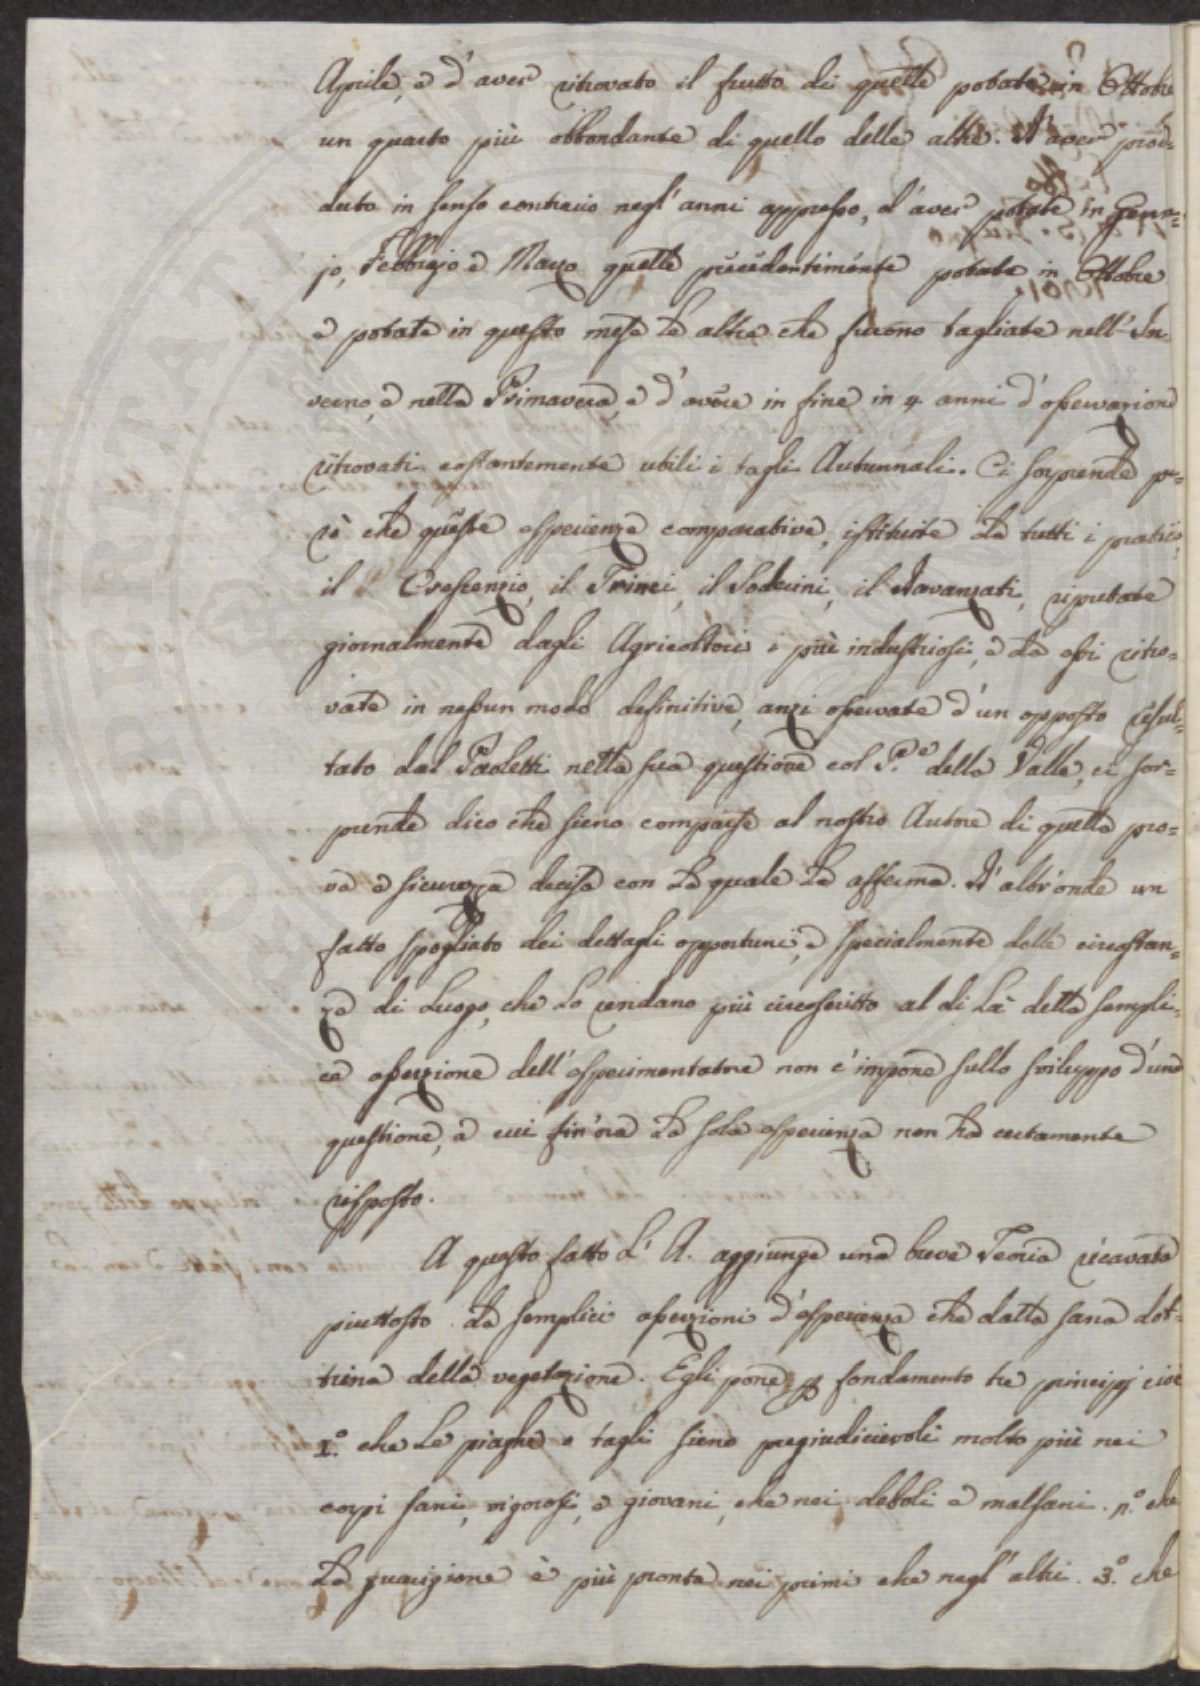 Aprile, e d'aver ritrovato il frutto di quelle potate in Ottobre
un quarto più abbondante di quello delle altre. D'aver proce-
duto in senso contrario negl'anni appresso, d'aver potate in Genna-
jo, Febbrajo e Marzo quelle precedentemente potate in Ottobre
e potate in questo mese le altre che furono tagliate nell'In-
verno, e nella Primavera, e d'avere in fine in 4 anni d'osservazione
ritrovati costantemente utili i tagli Autunnali. Ci sorprende pe-
rò che queste esperienze comparative, istituite da tutti i pratici
il Crescenzio, il Trinci, il Soderini, il Davanzati, riputate
giornalmente dagli Agricoltori i più industriosi, e da essi ritro-
vate in nessun modo definitive, anzi osservate d'un opposto resul-
tato dal Paoletti nella sua questione col P.e della Valle, ci sor-
prende dico che sieno comparse al nostro Autore di quella pro-
va e sicurezza decisa con la quale la afferma. D'altr'onde un
fatto spogliato dei dettagli opportuni, e specialmente delle circostan-
ze di Luogo, che Lo rendano più circoscritto al di Là della sempli-
ce asserzione dell'esperimentatore non c'impone sullo sviluppo d'una
questione, a cui fin'ora la sola esperienza non ha certamente
risposto.
A questo fatto L'A. aggiunge una breve Teoria ricavata
piuttosto da semplici asserzioni d'esperienza che dalla sana dot-
trina della vegetazione. Egli pone p fondamento tre principj cioè
1.º che Le piaghe o tagli sieno pregiudicievoli molto più nei
corpi sani, vigorosi, e giovani, che nei deboli e malsani. 2.º che
La guarigione è più pronta nei primi che negl'altri. 3.º che